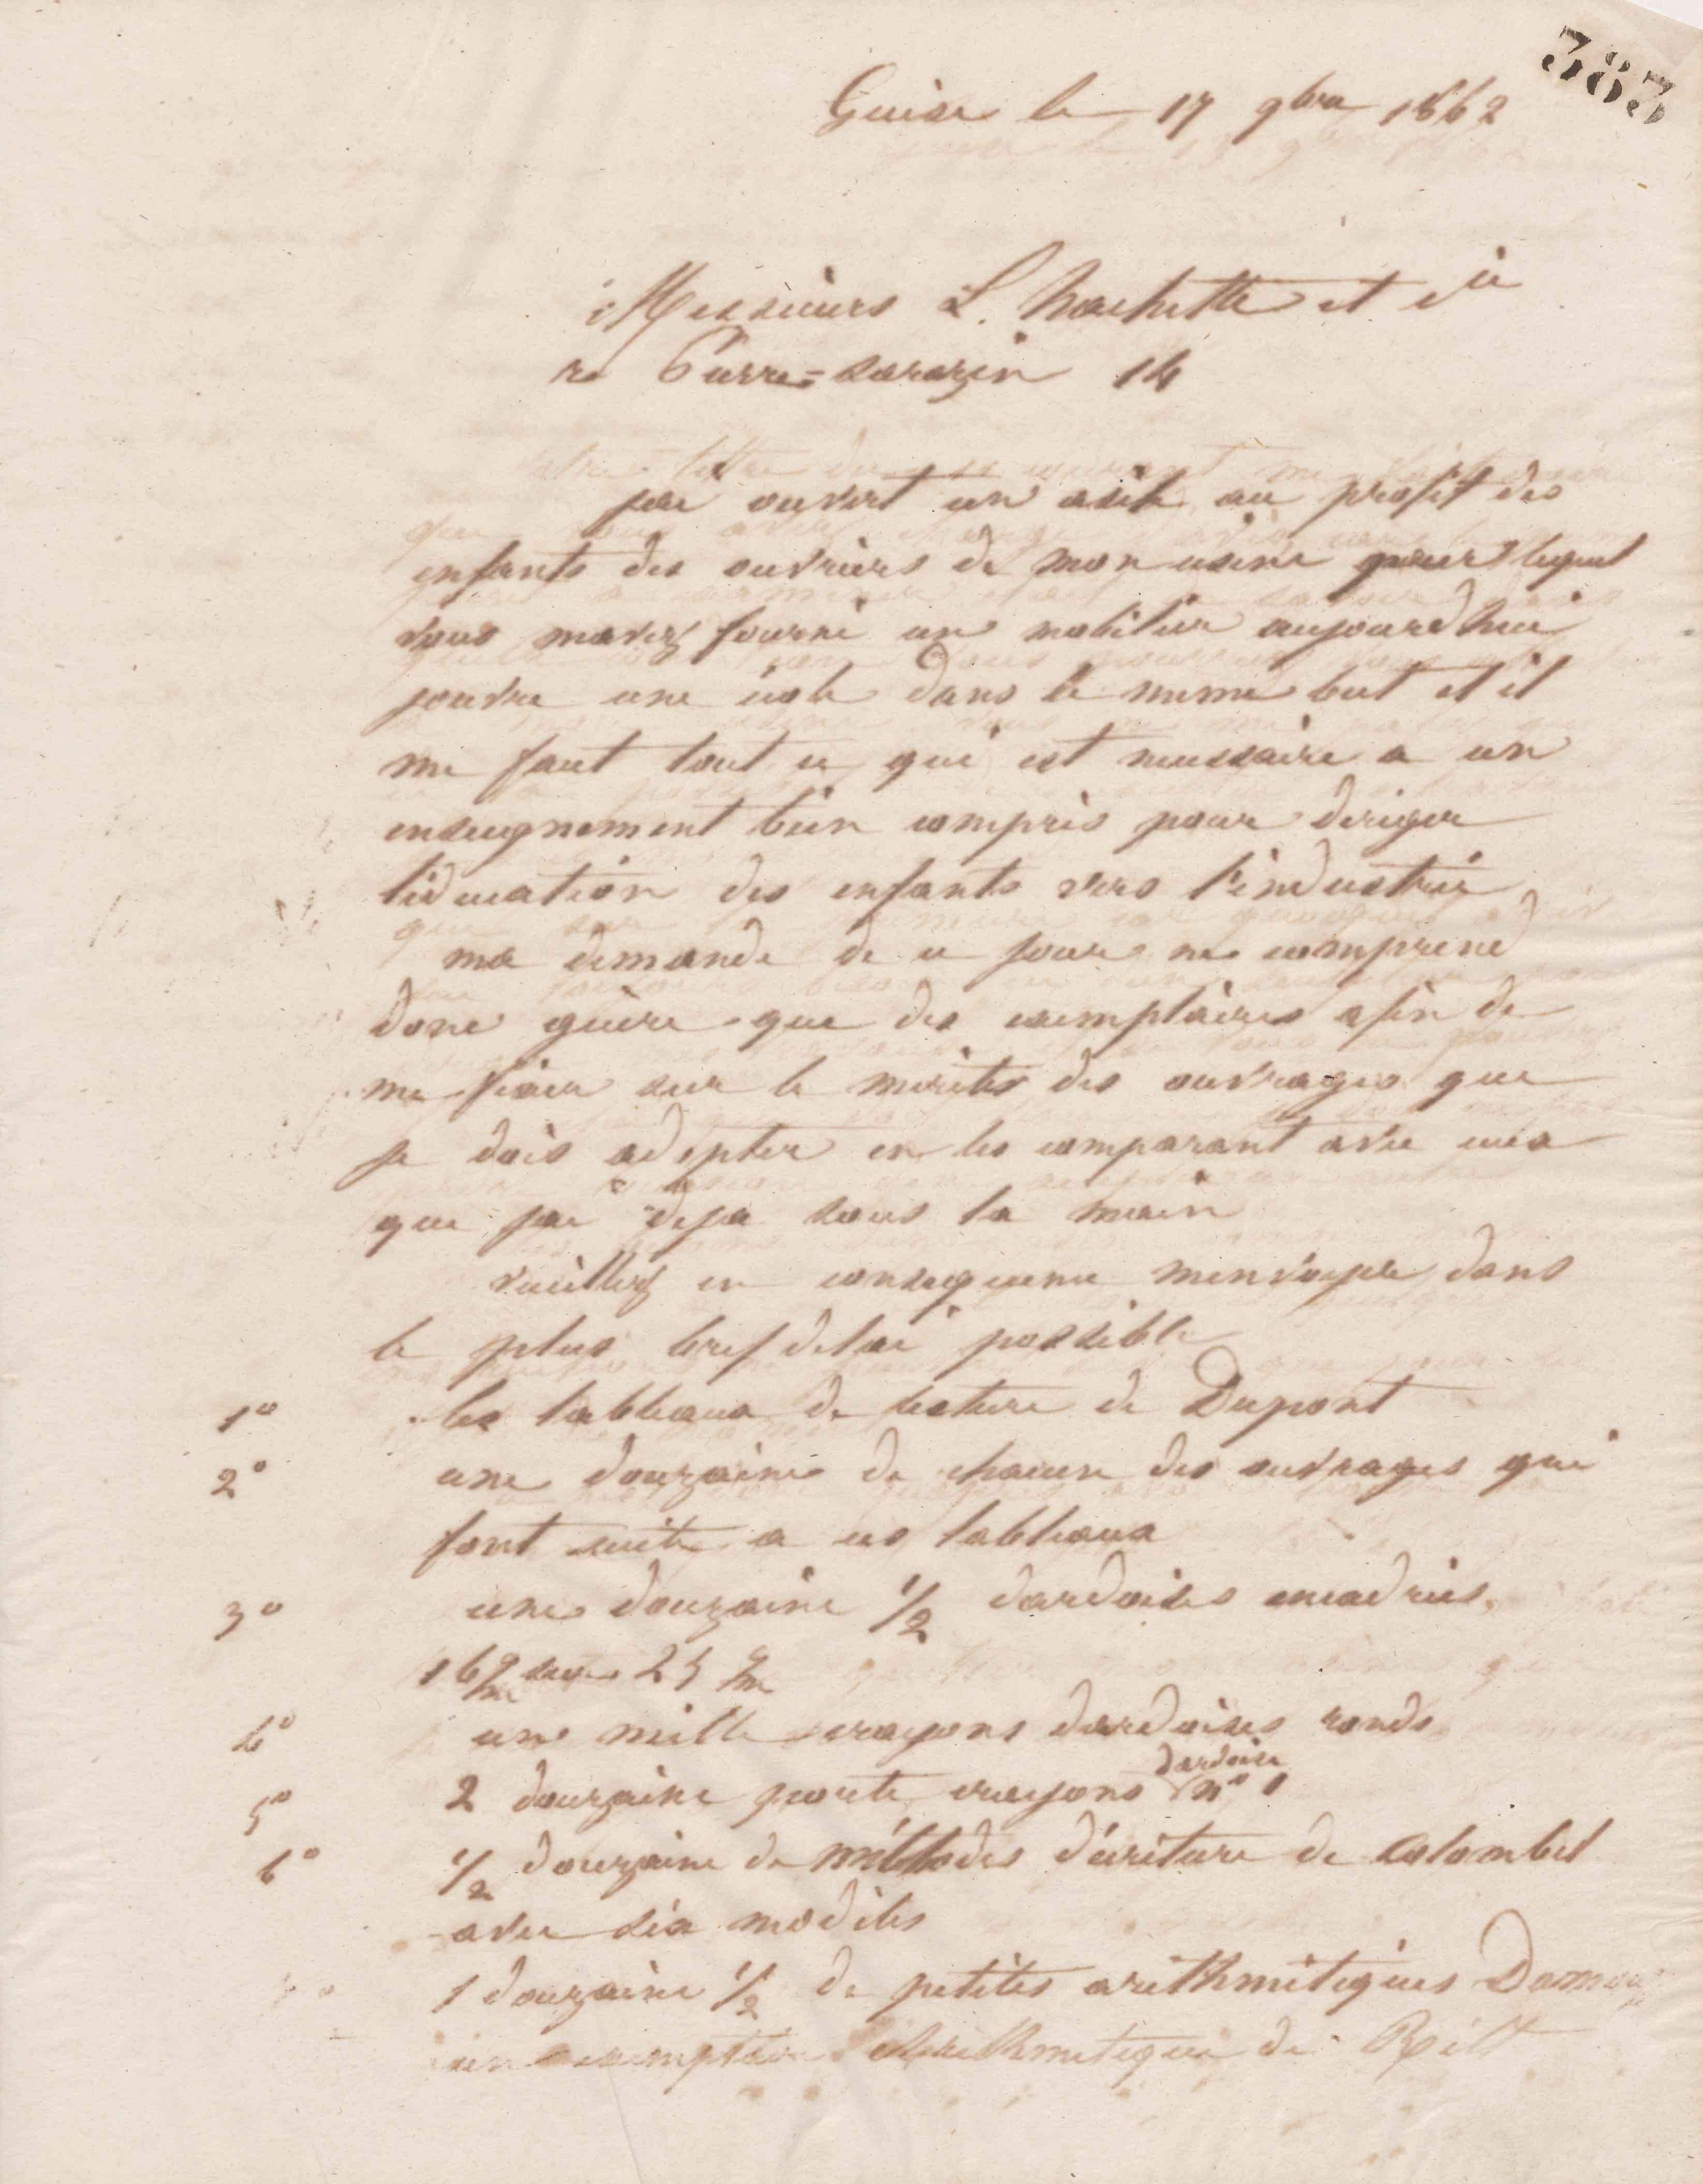 383
Guise le 17 9bre 1862
Messieurs L. hachette et cie
re Pierre=sarazin 14
jai ouvert un asile au profit des
enfants des ouvriers de mon usine pour lequel
vous mavez fourni un mobilier aujourdhui
jouvre une école dans le meme but et il
me faut tout ce qui est necessaire a un
enseignement bien compris pour diriger
léducation des enfants vers l'industrie
ma demande de ce jour ne comprend
donc guère que des exemplaires afin de
me fixer sur le mérite des ouvrages que
je dois adopter en les comparant avec ceux
que jai deja sous la main
veuillez en consequence menvoyer dans
le plus bref delai possible
1o les tableaux de lecture de Dupont
2o une douzaine de chacun des ouvrages qui
font suite a ces tableaux
3o une douzaine 1/2 dardoises encadrées
16 c/m sur 25 c/m
4o un mille crayons dardoises ronds
5o 2 douzaine porte crayons dardoise no 1
6o 1/2 douzaine de méthodes décriture de Colombel
avec six modèles
1 douzaine 1/2 de petites arithmétiques
un exemplaire Arithmetique de